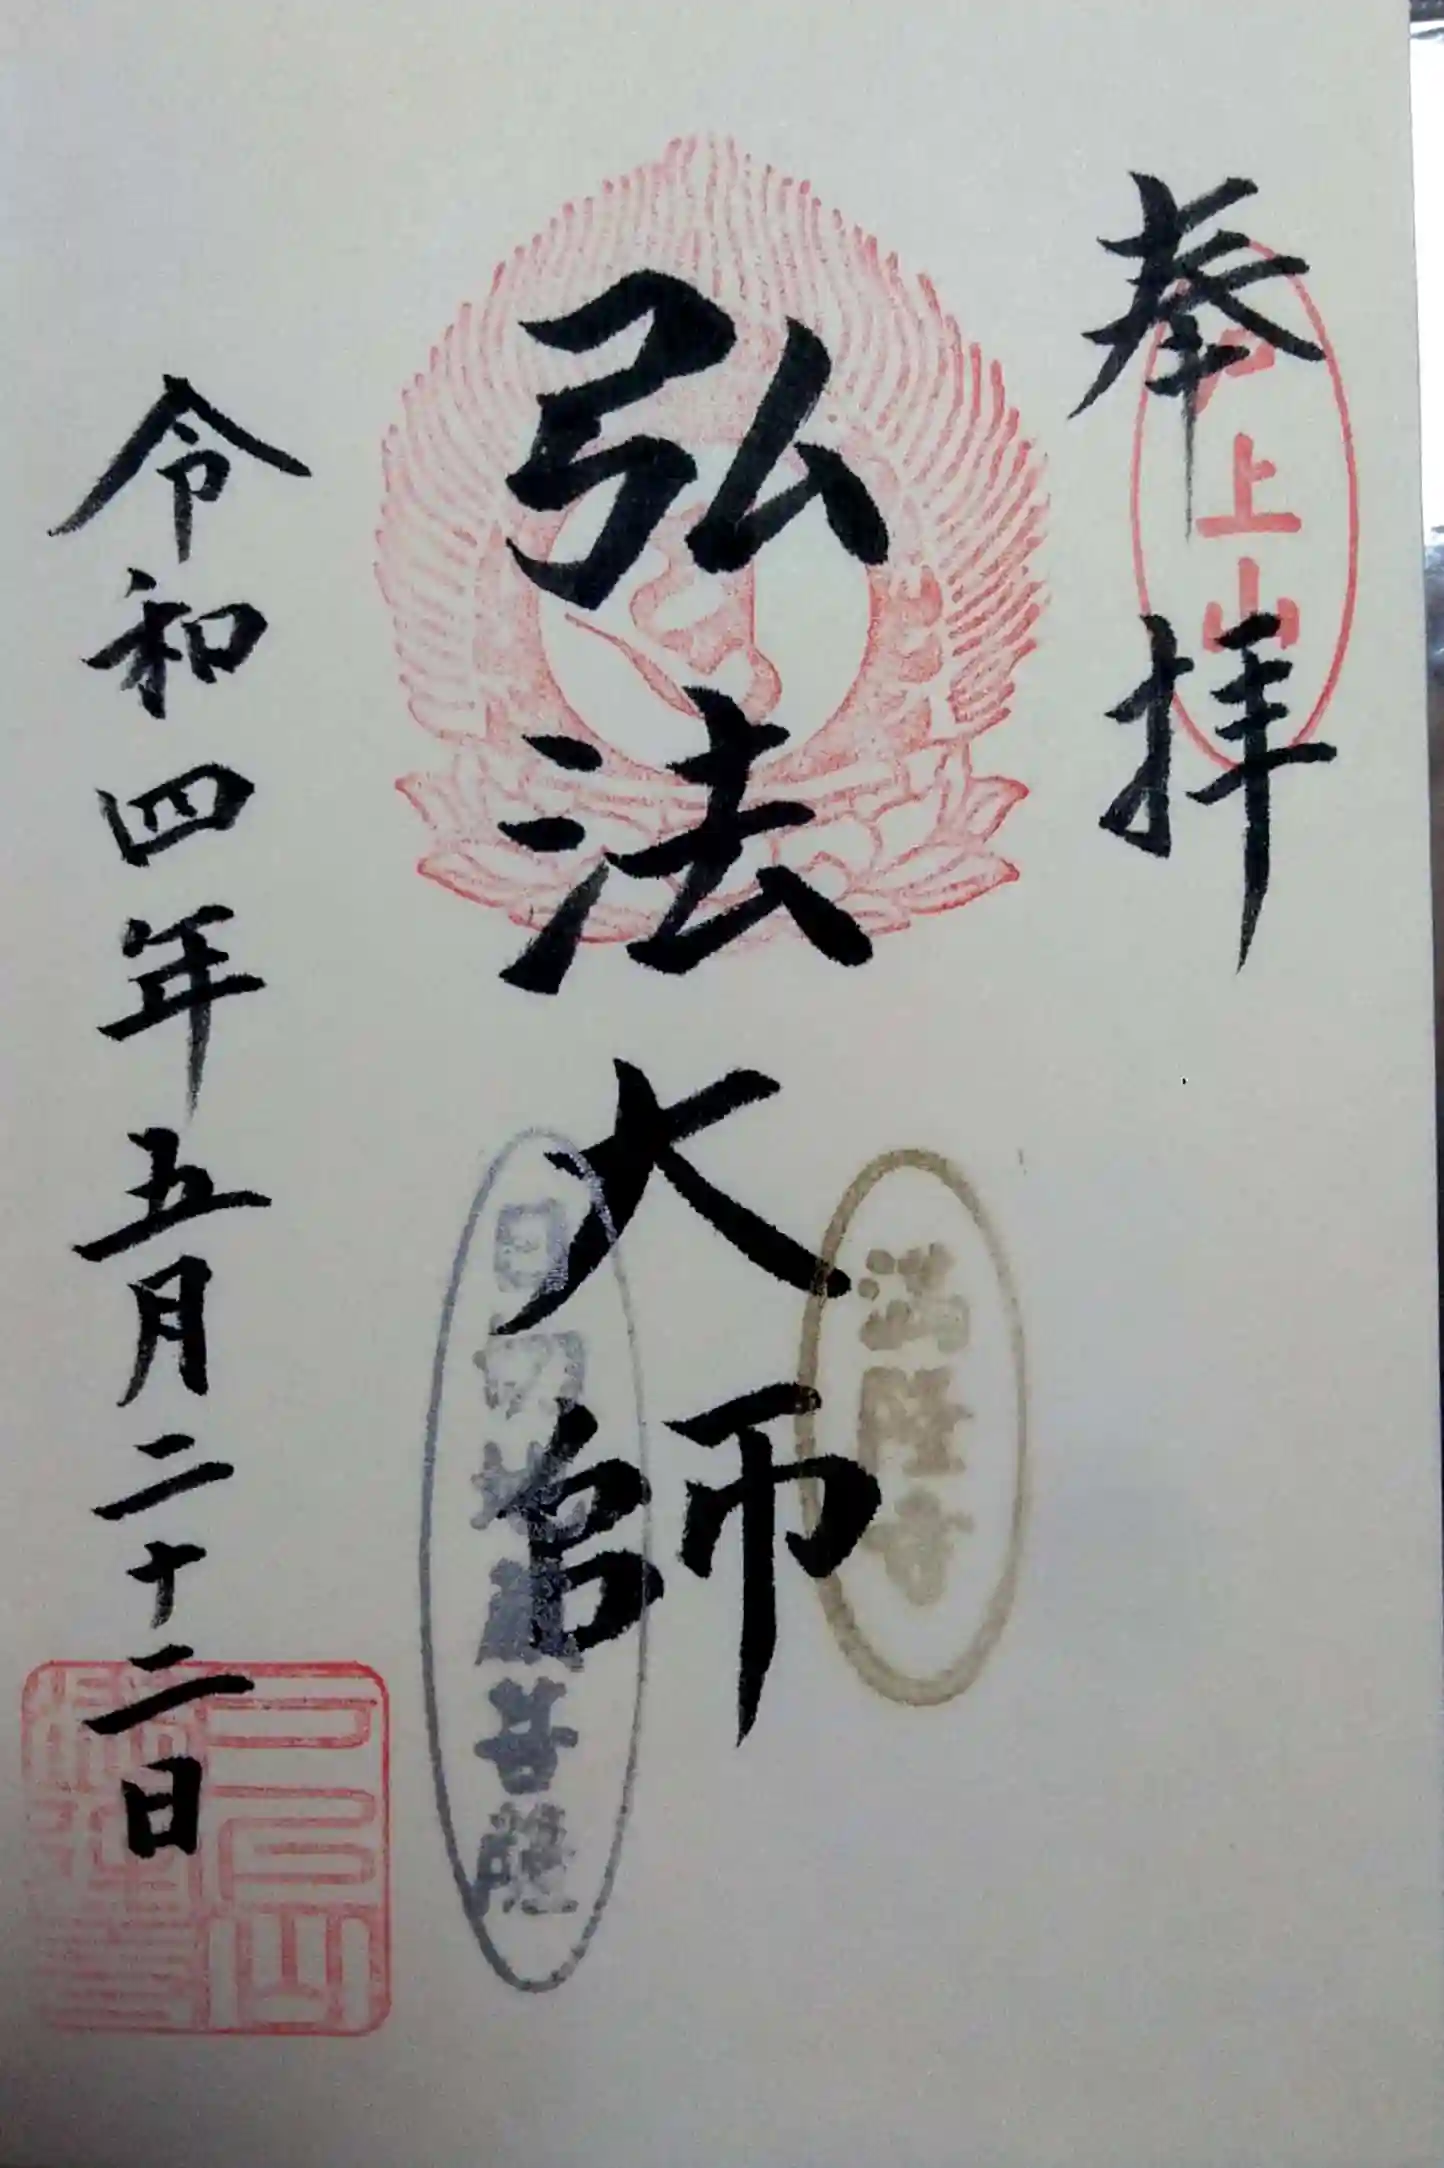 奉拝
上山
弘法大師
満隆寺
日切地蔵菩薩
令和四年五月二十二日